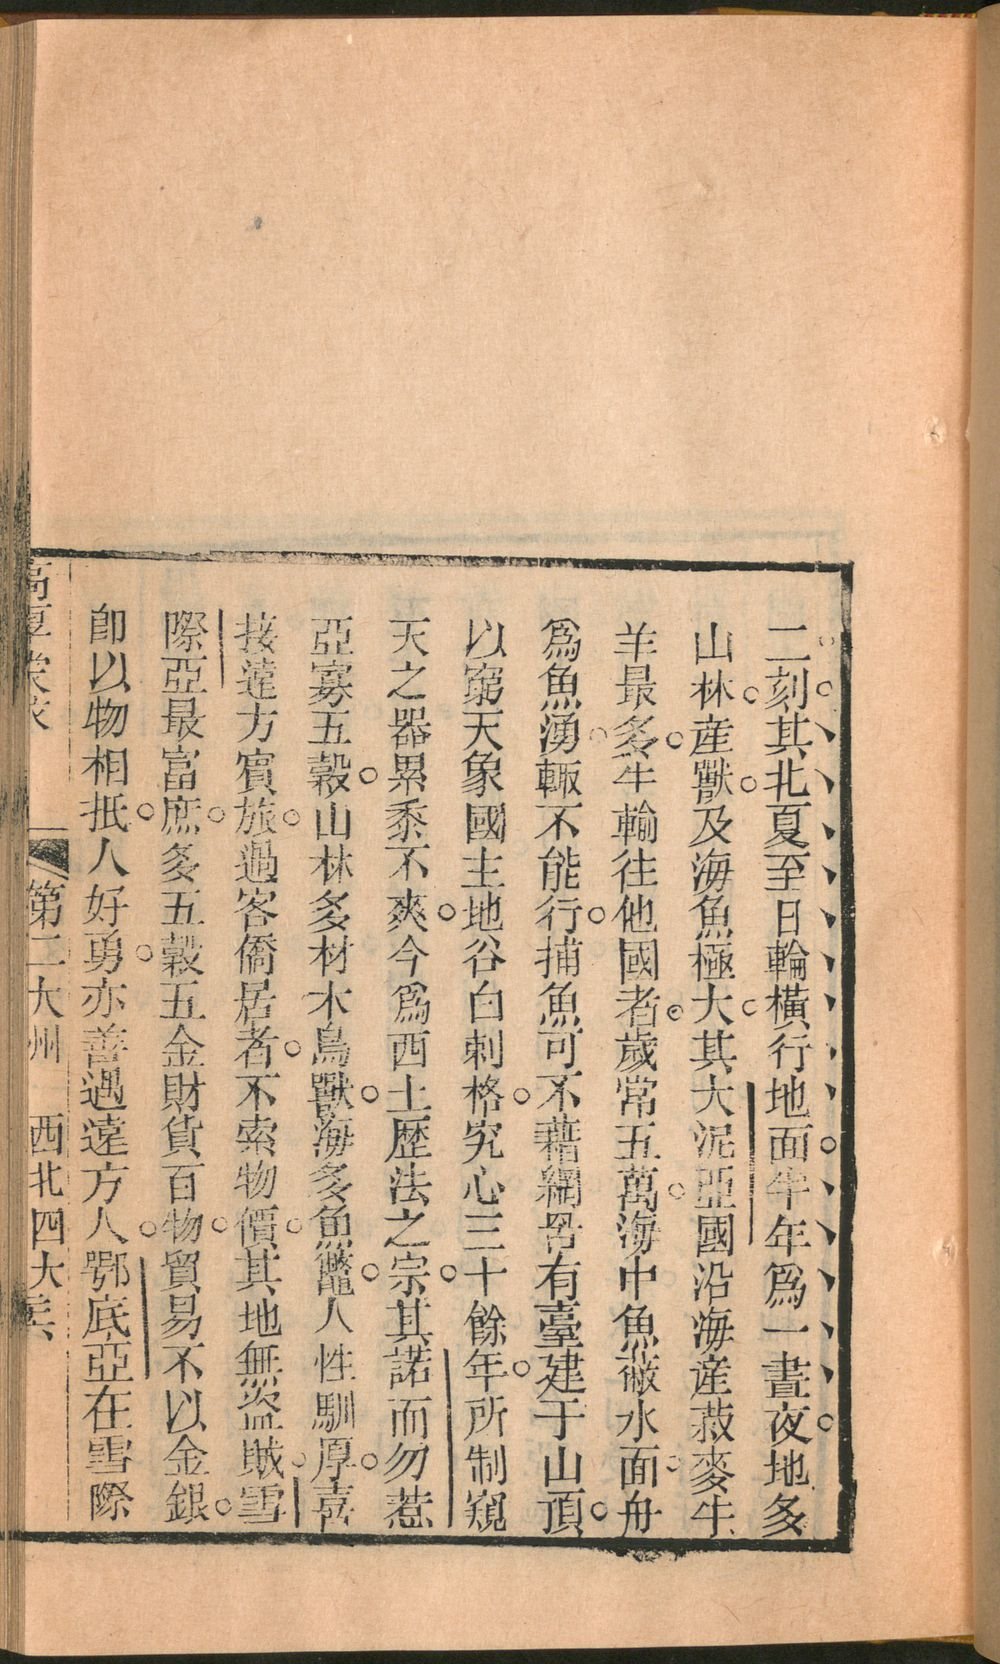 二刻其北夏至日輪橫行地面半年爲一晝夜地多
山林産獸及海魚極大其大泥亞國沿海産菽麥牛
羊最多牛輸往他國者歲常五萬海中魚蔽水面舟
爲魚湧輙不能行捕魚可不藉網罟有臺建于山頂
以窮天象國主地谷白剌格究心三十餘年所制窺
天之器累黍不爽今爲西土歷法之宗其諾而勿惹
亞寡五穀山林多材木鳥獸海多魚鼈人性馴厚喜
接遠方賓旅過客僑居者不索物價其地無盜賊雪
際亞最富庶多五穀五金財貨百物貿易不以金銀
卽以物相抵人好勇亦善遇遠方人鄂底亞在雪際
高厚蒙求 第二大州 西北四大